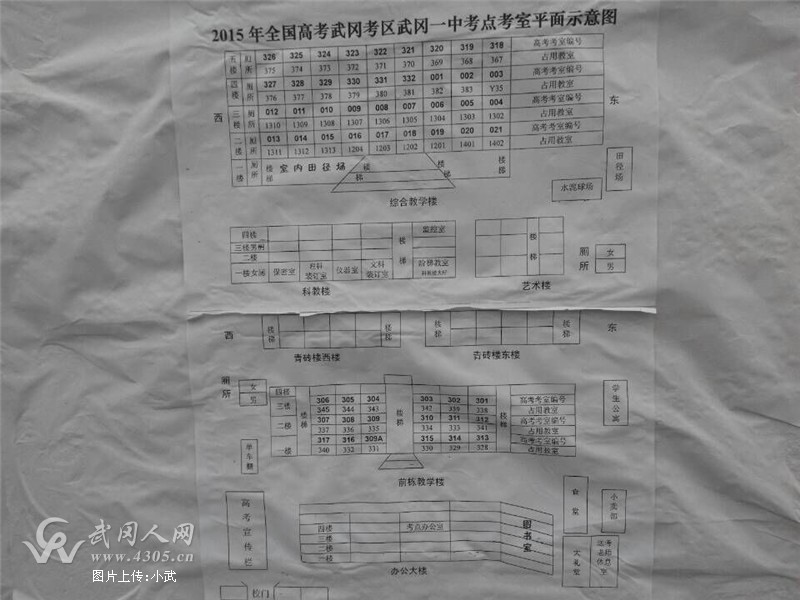 2015年全国高考武冈考区武冈一中考点考室平面示意图
五楼 厕所 326 325 324 323 322 321 320 319 318 高考考室编号
375 374 373 372 371 370 369 368 367 占用教室
四楼 厕所 327 328 329 330 331 332 001 002 003 高考考室编号
376 377 378 379 380 381 382 383 Y35 占用教室
西
东
三楼 厕所 012 011 010 009 008 007 006 005 004 高考考室编号
1310 1309 1308 1307 1306 1305 1304 1303 1302 占用教室
二楼 厕所 013 014 015 016 017 018 019 020 021 高考考室编号
1311 1312 1313 1204 1203 1202 1201 1401 1402 占用教室
一楼 厕所 楼梯 室内田径场 楼梯 楼梯 楼梯
田径场
水泥球场
综合教学楼
四楼 监控室
三楼男厕
二楼
一楼女厕 保密室 仪器室 文科装订室 楼梯 阶梯教室
楼梯 楼梯
厕所 女 男
科教楼
艺术楼
西 楼梯 楼梯 楼梯 楼梯 东
青砖楼西楼
青砖楼东楼
厕所 女 男
四楼
三楼 306 305 304 303 302 301 高考考室编号
345 344 343 342 339 338 占用教室
二楼 307 308 309 310 311 312 高考考室编号
337 336 335 334 333 341 占用教室
一楼 317 316 309A 315 314 313 高考考室编号
340 332 331 330 329 328 占用教室
楼梯 楼梯 楼梯
学生公寓
单车棚
前栋教学楼
高考宣传栏
四楼 考点办公室
三楼
二楼
一楼
图书室
食堂
小卖部
大礼堂
送考老师休息室
办公大楼
校门
武冈人网
www.4305.cn
图片上传:小武